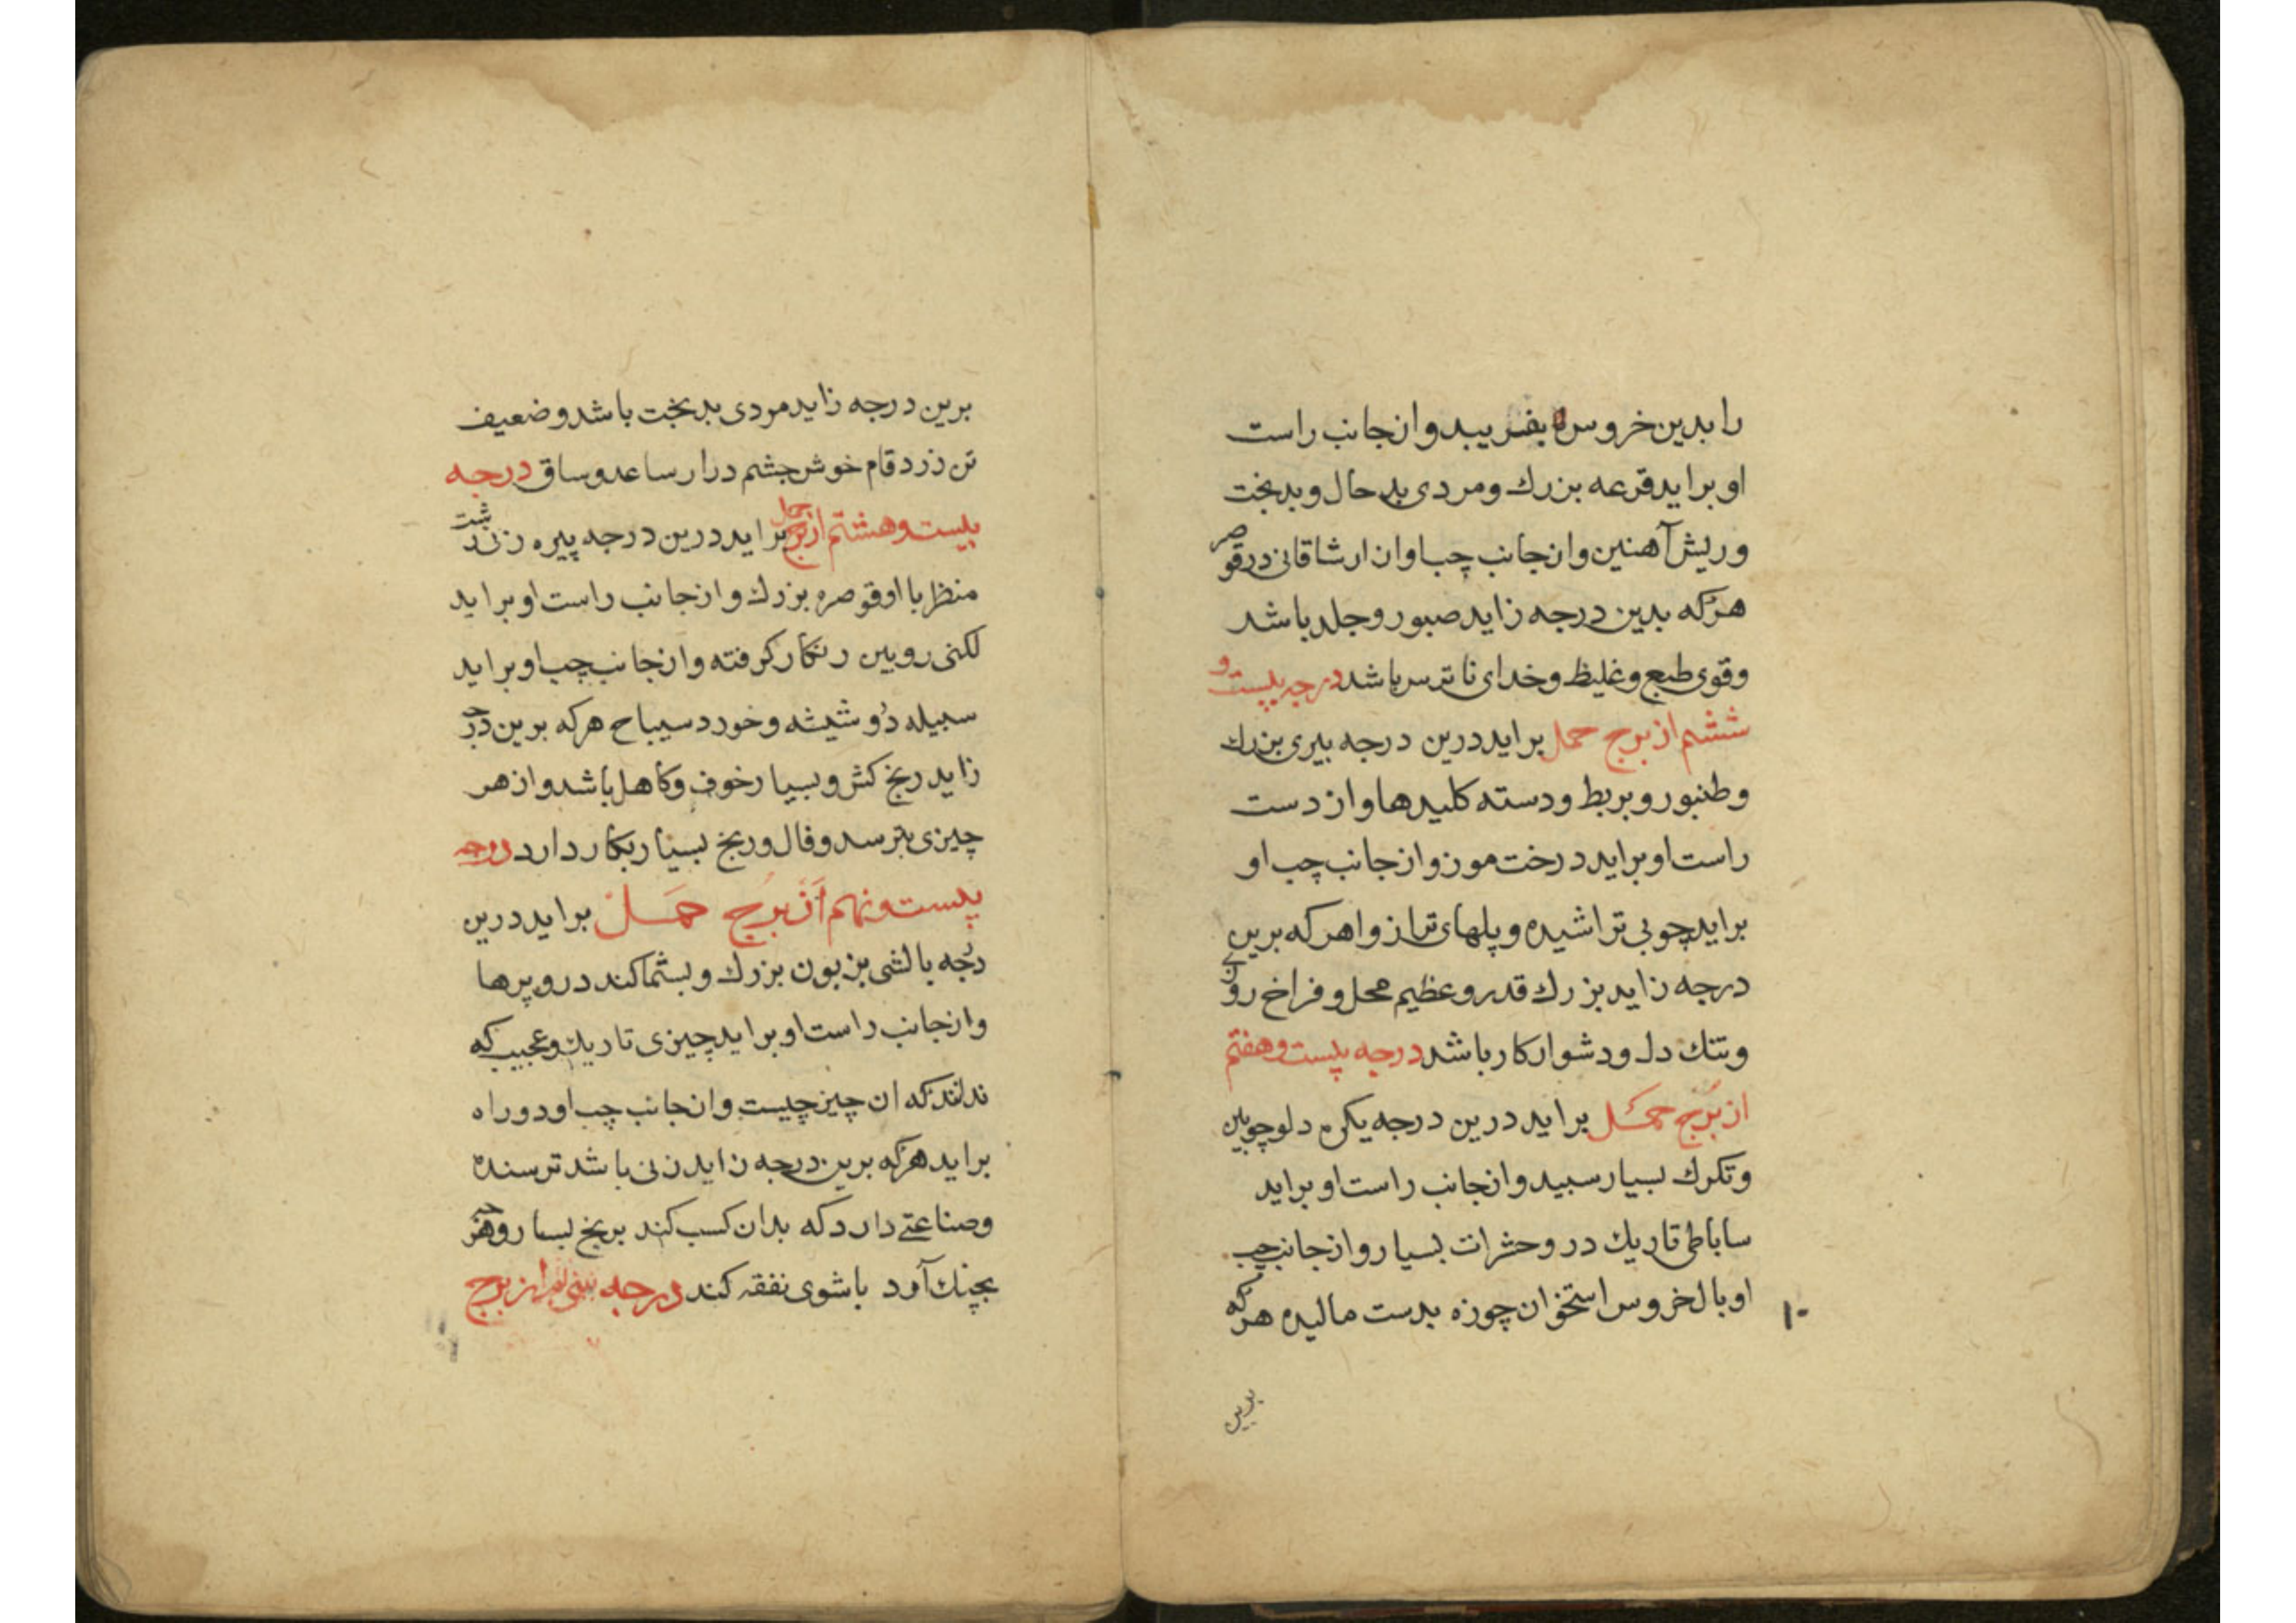 را بدین خروس بفریبد و از جانب راست
او براید قرعه بزرك و مردی بد حال و بدبخت
و ریش آهنین و از جانب چپ او ان ارشاقانی در قوصر
هرکه بدین درجه زاید صبور و جلد باشد
و قوی طبع و غلیظ و خدای ناترس باشد درجه بیست و
ششم از برج حمل براید درین درجه بیری بزرك
و طنبور و بربط و دسته کلیدها و از دست
راست او براید درخت موز و از جانب چپ او
براید چوبی تراشیده و پلهای ترازوا هرکه برین
درجه زاید بزرك قدر و عظیم محل و فراخ روزی
و تنك دل و دشوار کار باشد درجه بیست و هفتم
از برج حمل براید درین درجه یکره دلو چوبین
و تکرك بسیار سبید و از جانب راست او براید
ساباطی تاریك درو حشرات بسیار و از جانب چپ
او بال خروس استخوان چوزه بدست مالیده هرکه
۱۰
برین
برین درجه زاید مردی بدبخت باشد و ضعیف
تن زرد فام خوش چشم دراز ساعد و ساق درجه
بیست و هشتم از برج حمل براید درین درجه پیره زن زشت
منظر با او قوصره بزرك و از جانب راست او براید
لکنی رویین رنکار کرفته و از جانب چپ او براید
سبیله دو شیشه و خورد سیباح هرکه برین درجه
زاید رنج کش و بسیار خوف و کاهل باشد و از هر
چیزی بترسد و فال و رنج بسیار بکار دارد درجه
بیست و نهم از برج حمل براید درین
درجه بالشی بزبون بزرك و بشتماکند درو پرها
و از جانب راست او براید چیزی تاریك و عجیب که
ندانند که ان چیز چیست و از جانب چپ او دو راه
براید هرکه برین درجه زاید زنی باشد ترسنده
و صناعتی دارد که بدان کسب کند برنج بسیار و هرچه
بچنك آرد با شوی نفقه کند درجه سی‌ام از برج